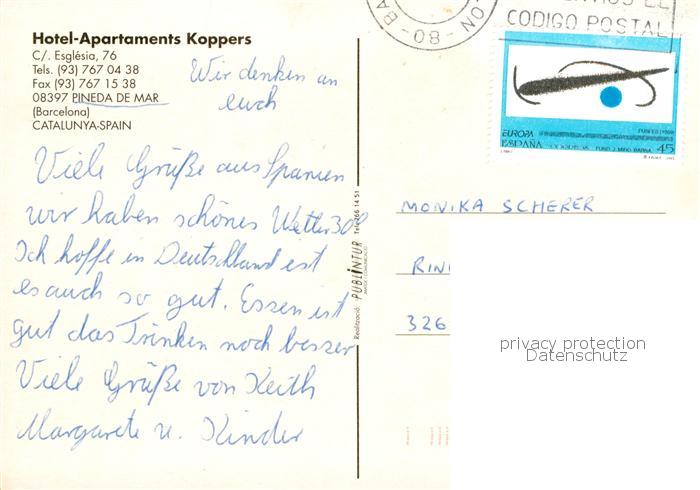 Hotel-Apartaments Koppers
C/. Església, 76
Tels. (93) 767 04 38
Fax (93) 767 15 38
08397 PINEDA DE MAR
(Barcelona)
CATALUNYA-SPAIN
Wir denken an
euch
Viele Grüße aus Spanien
wir haben schönes Wetter 30°
Ich hoffe in Deutschland ist
es auch so gut. Essen ist
gut das Trinken noch besser
Viele Grüße von Keith
Margarete u. Kinder
Realizació: PUBLINTUR
CODIGO POSTAL
80 - BA
EUROPA
ESPAÑA
45
MONIKA SCHERER
RIN
326
privacy protection
Datenschutz